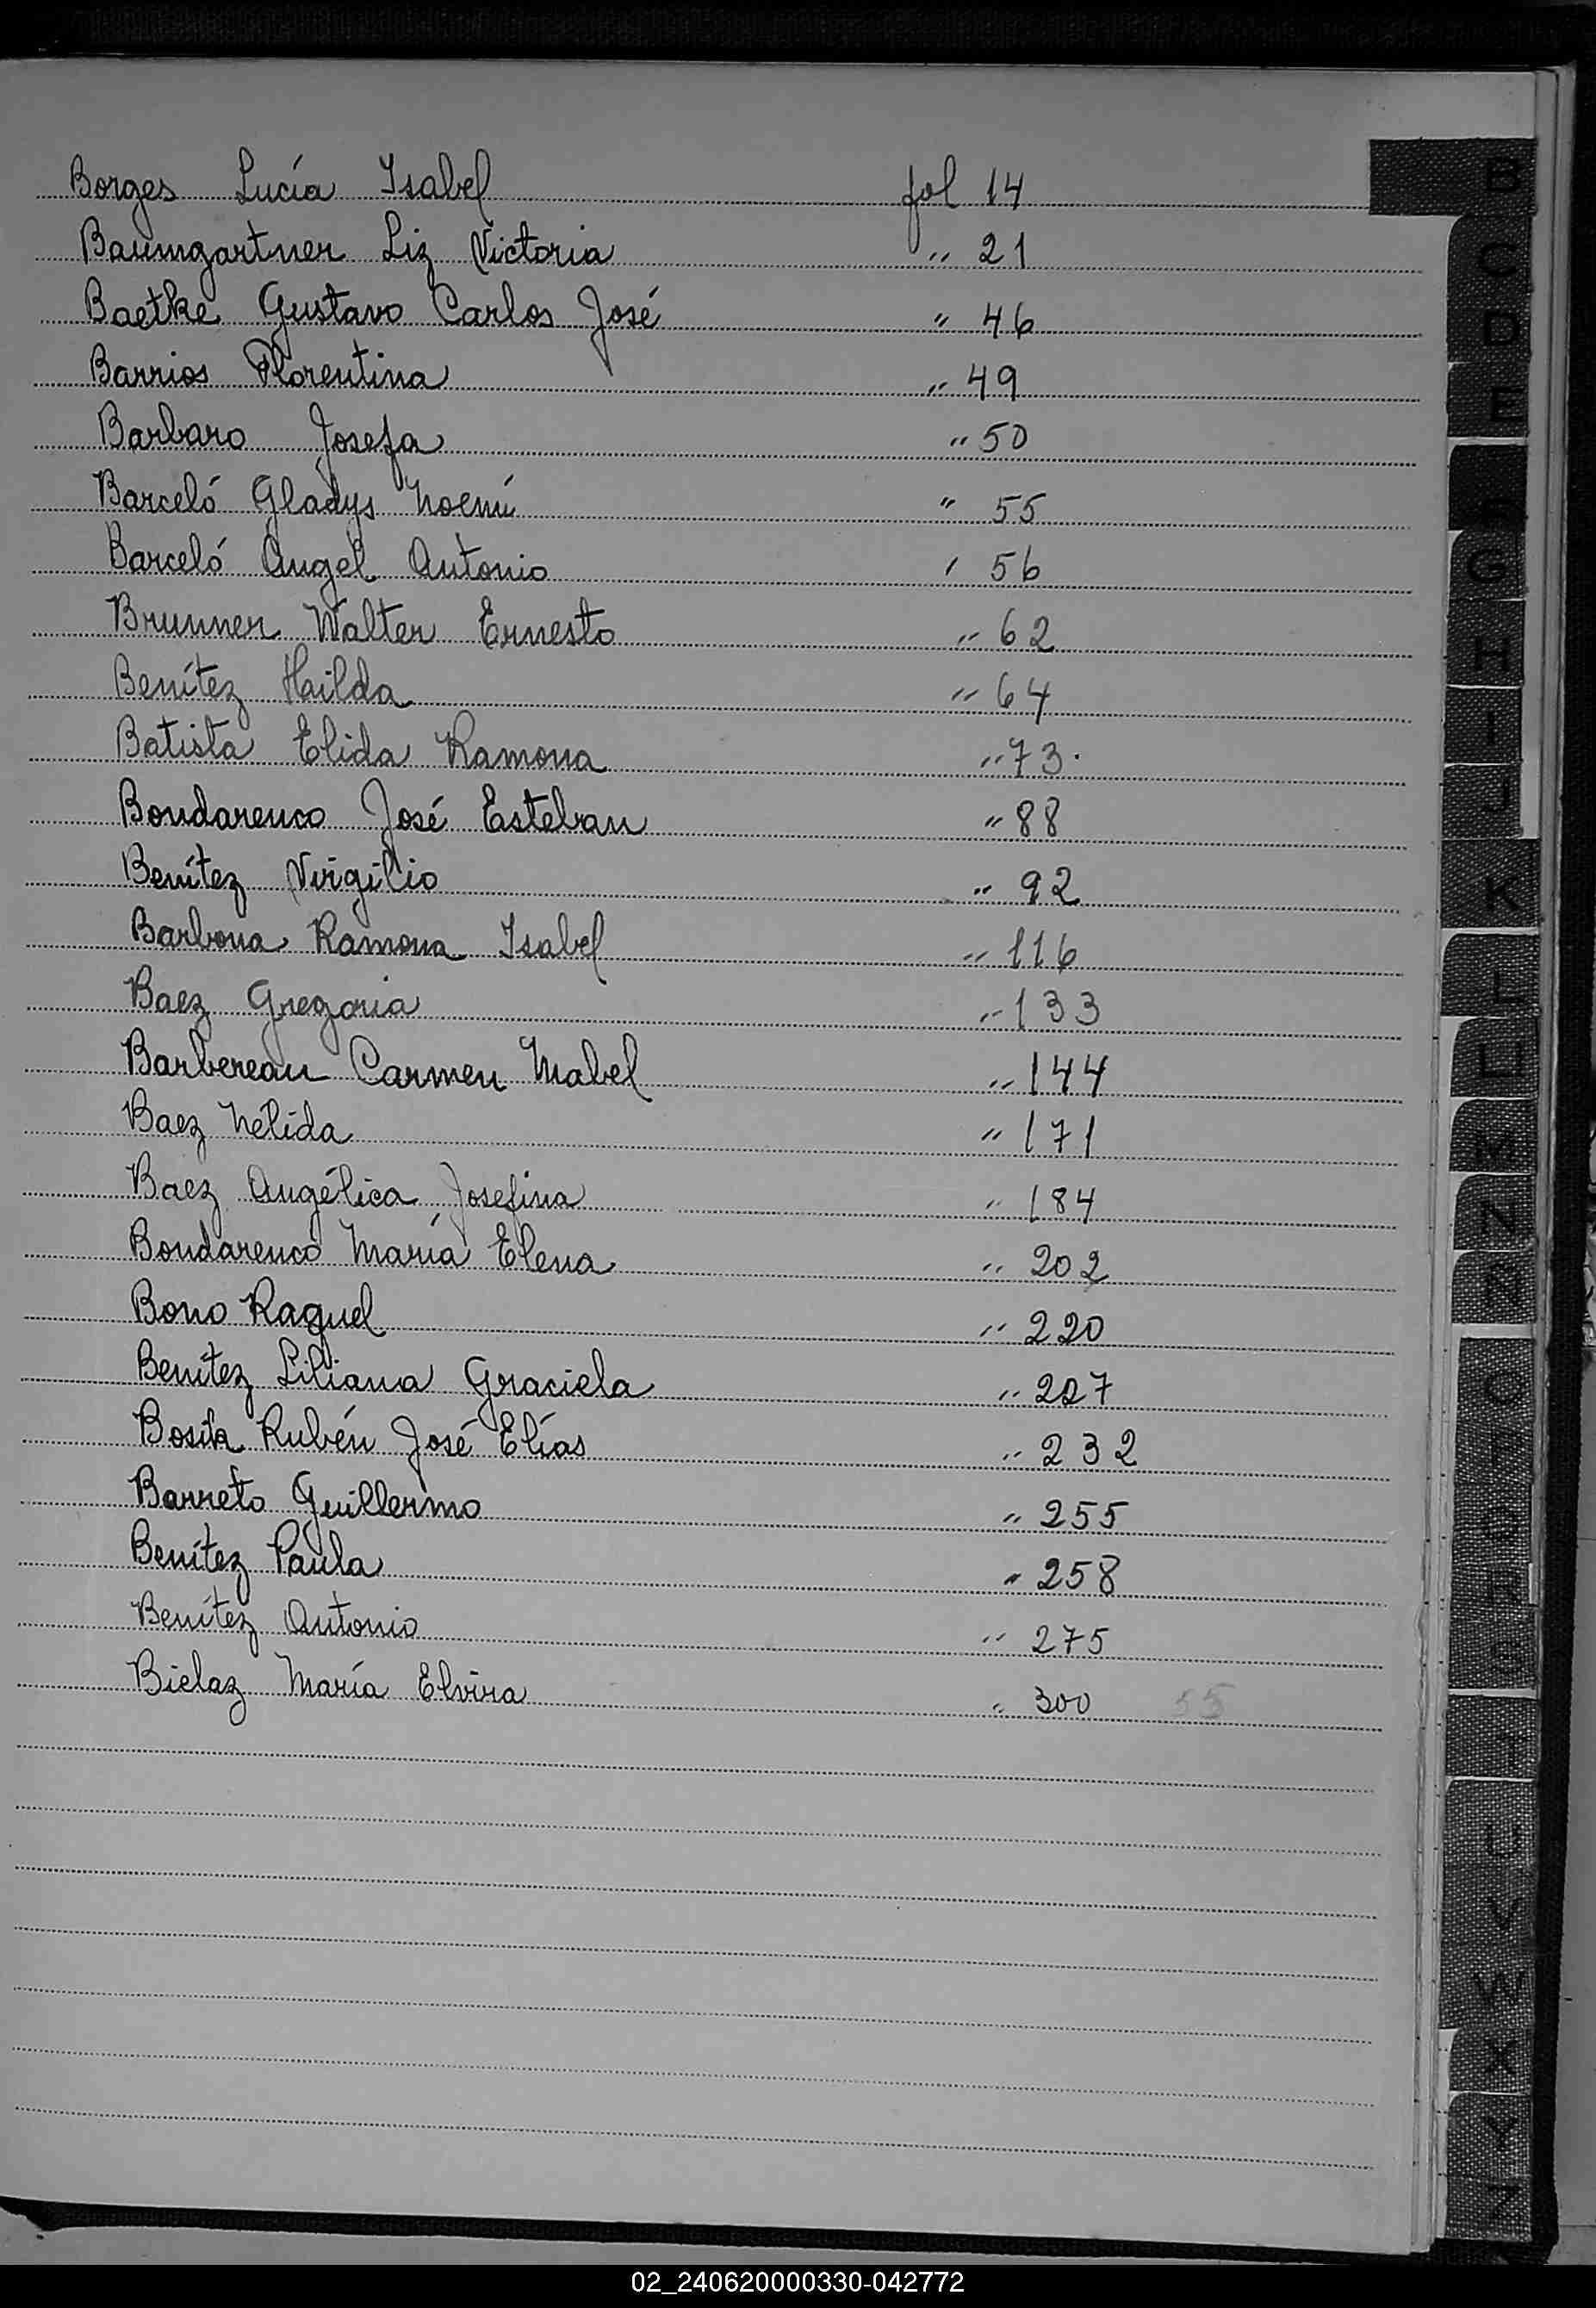 Borges Lucía Isabel fol 14
Baumgartner Liz Victoria " 21
Baetke Gustavo Carlos José " 46
Barrios Florentina " 49
Barbaro Josefa " 50
Barceló Gladys Noemí " 55
Barceló Angel Antonio ' 56
Brunner Walter Ernesto " 62
Benítez Hailda " 64
Batista Elida Ramona " 73.
Bondarenco José Esteban " 88
Benítez Virgilio " 92
Barbona Ramona Isabel " 116
Baez Gregoria " 133
Barbereau Carmen Mabel " 144
Baez Nélida " 171
Baez Angélica Josefina " 184
Bondarenco María Elena " 202
Bono Raquel " 220
Benítez Liliana Graciela " 227
Rubén José Elías " 232
Barreto Guillermo " 255
Benítez Paula " 258
Benítez Antonio " 275
Bielaz María Elvira " 300 55
B
C
D
E
G
H
I
J
K
L
LL
M
N
Ñ
O
P
Q
R
S
T
U
V
W
X
Y
Z
02_240620000330-042772